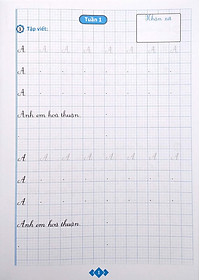 Tuần 1
Nhận xét
1 Tập viết:
A A A A A A A
A
A
Anh em hoà thuận.
A A A A A A A
A
A
Anh em hoà thuận.
1